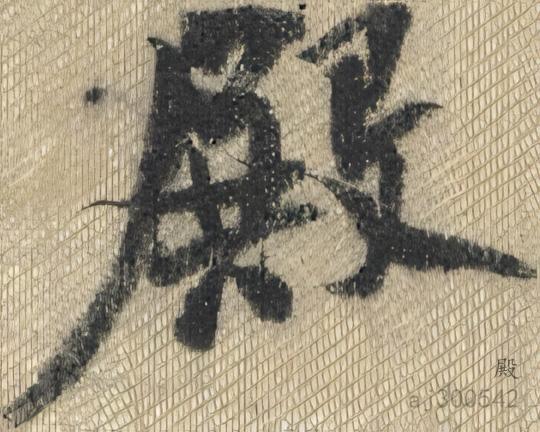 殿
殿
a_300542